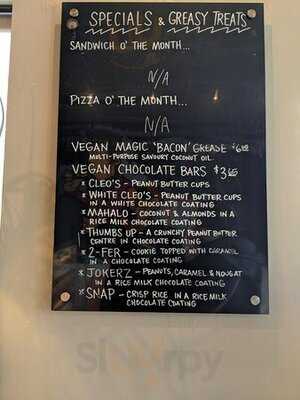 SPECIALS & GREASY TREATS
SANDWICH O' THE MONTH...
N/A
PIZZA O' THE MONTH...
N/A
VEGAN MAGIC 'BACON' GREASE
MULTI-PURPOSE SAVOURY COCONUT OIL
VEGAN CHOCOLATE BARS
* CLEO'S - PEANUT BUTTER CUPS
* WHITE CLEO'S - PEANUT BUTTER CUPS
IN A WHITE CHOCOLATE COATING
* MAHALO - COCONUT & ALMONDS IN A
RICE MILK CHOCOLATE COATING
* THUMBS UP - A CRUNCHY PEANUT BUTTER
CENTRE IN CHOCOLATE COATING
* 2-FER - COOKIE TOPPED WITH CARAMEL
IN A CHOCOLATE COATING
* JOKERZ - PEANUTS, CARAMEL & NOUGAT
IN A RICE MILK CHOCOLATE COATING
* SNAP - CRISP RICE IN A RICE MILK
CHOCOLATE COATING